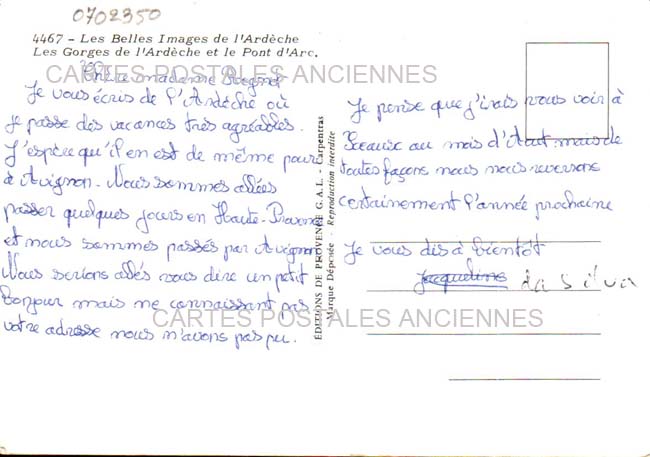 0702350
4467 - Les Belles Images de l'Ardèche
Les Gorges de l'Ardèche et le Pont d'Arc.
CARTES POSTALES ANCIENNES
Chère madame
Je vous écris de l'Ardèche où
je passe des vacances très agréables.
J'espère qu'il en est de même pour
à Avignon. Nous sommes allées
passer quelques jours en Haute-Provence
et nous sommes passés par Avignon
Nous serions allés vous dire un petit
bonjour mais ne connaissant pas
votre adresse nous n'avons pas pu.
ÉDITIONS DE PROVENCE G.A.L. - Carpentras
Marque Déposée - Reproduction interdite
Je pense que j'irais vous voir à
Sceaux au mois d'Août mais de
toutes façons nous nous reverrons
certainement l'année prochaine
Je vous dis à bientôt
Jacqueline da silva
CARTES POSTALES ANCIENNES